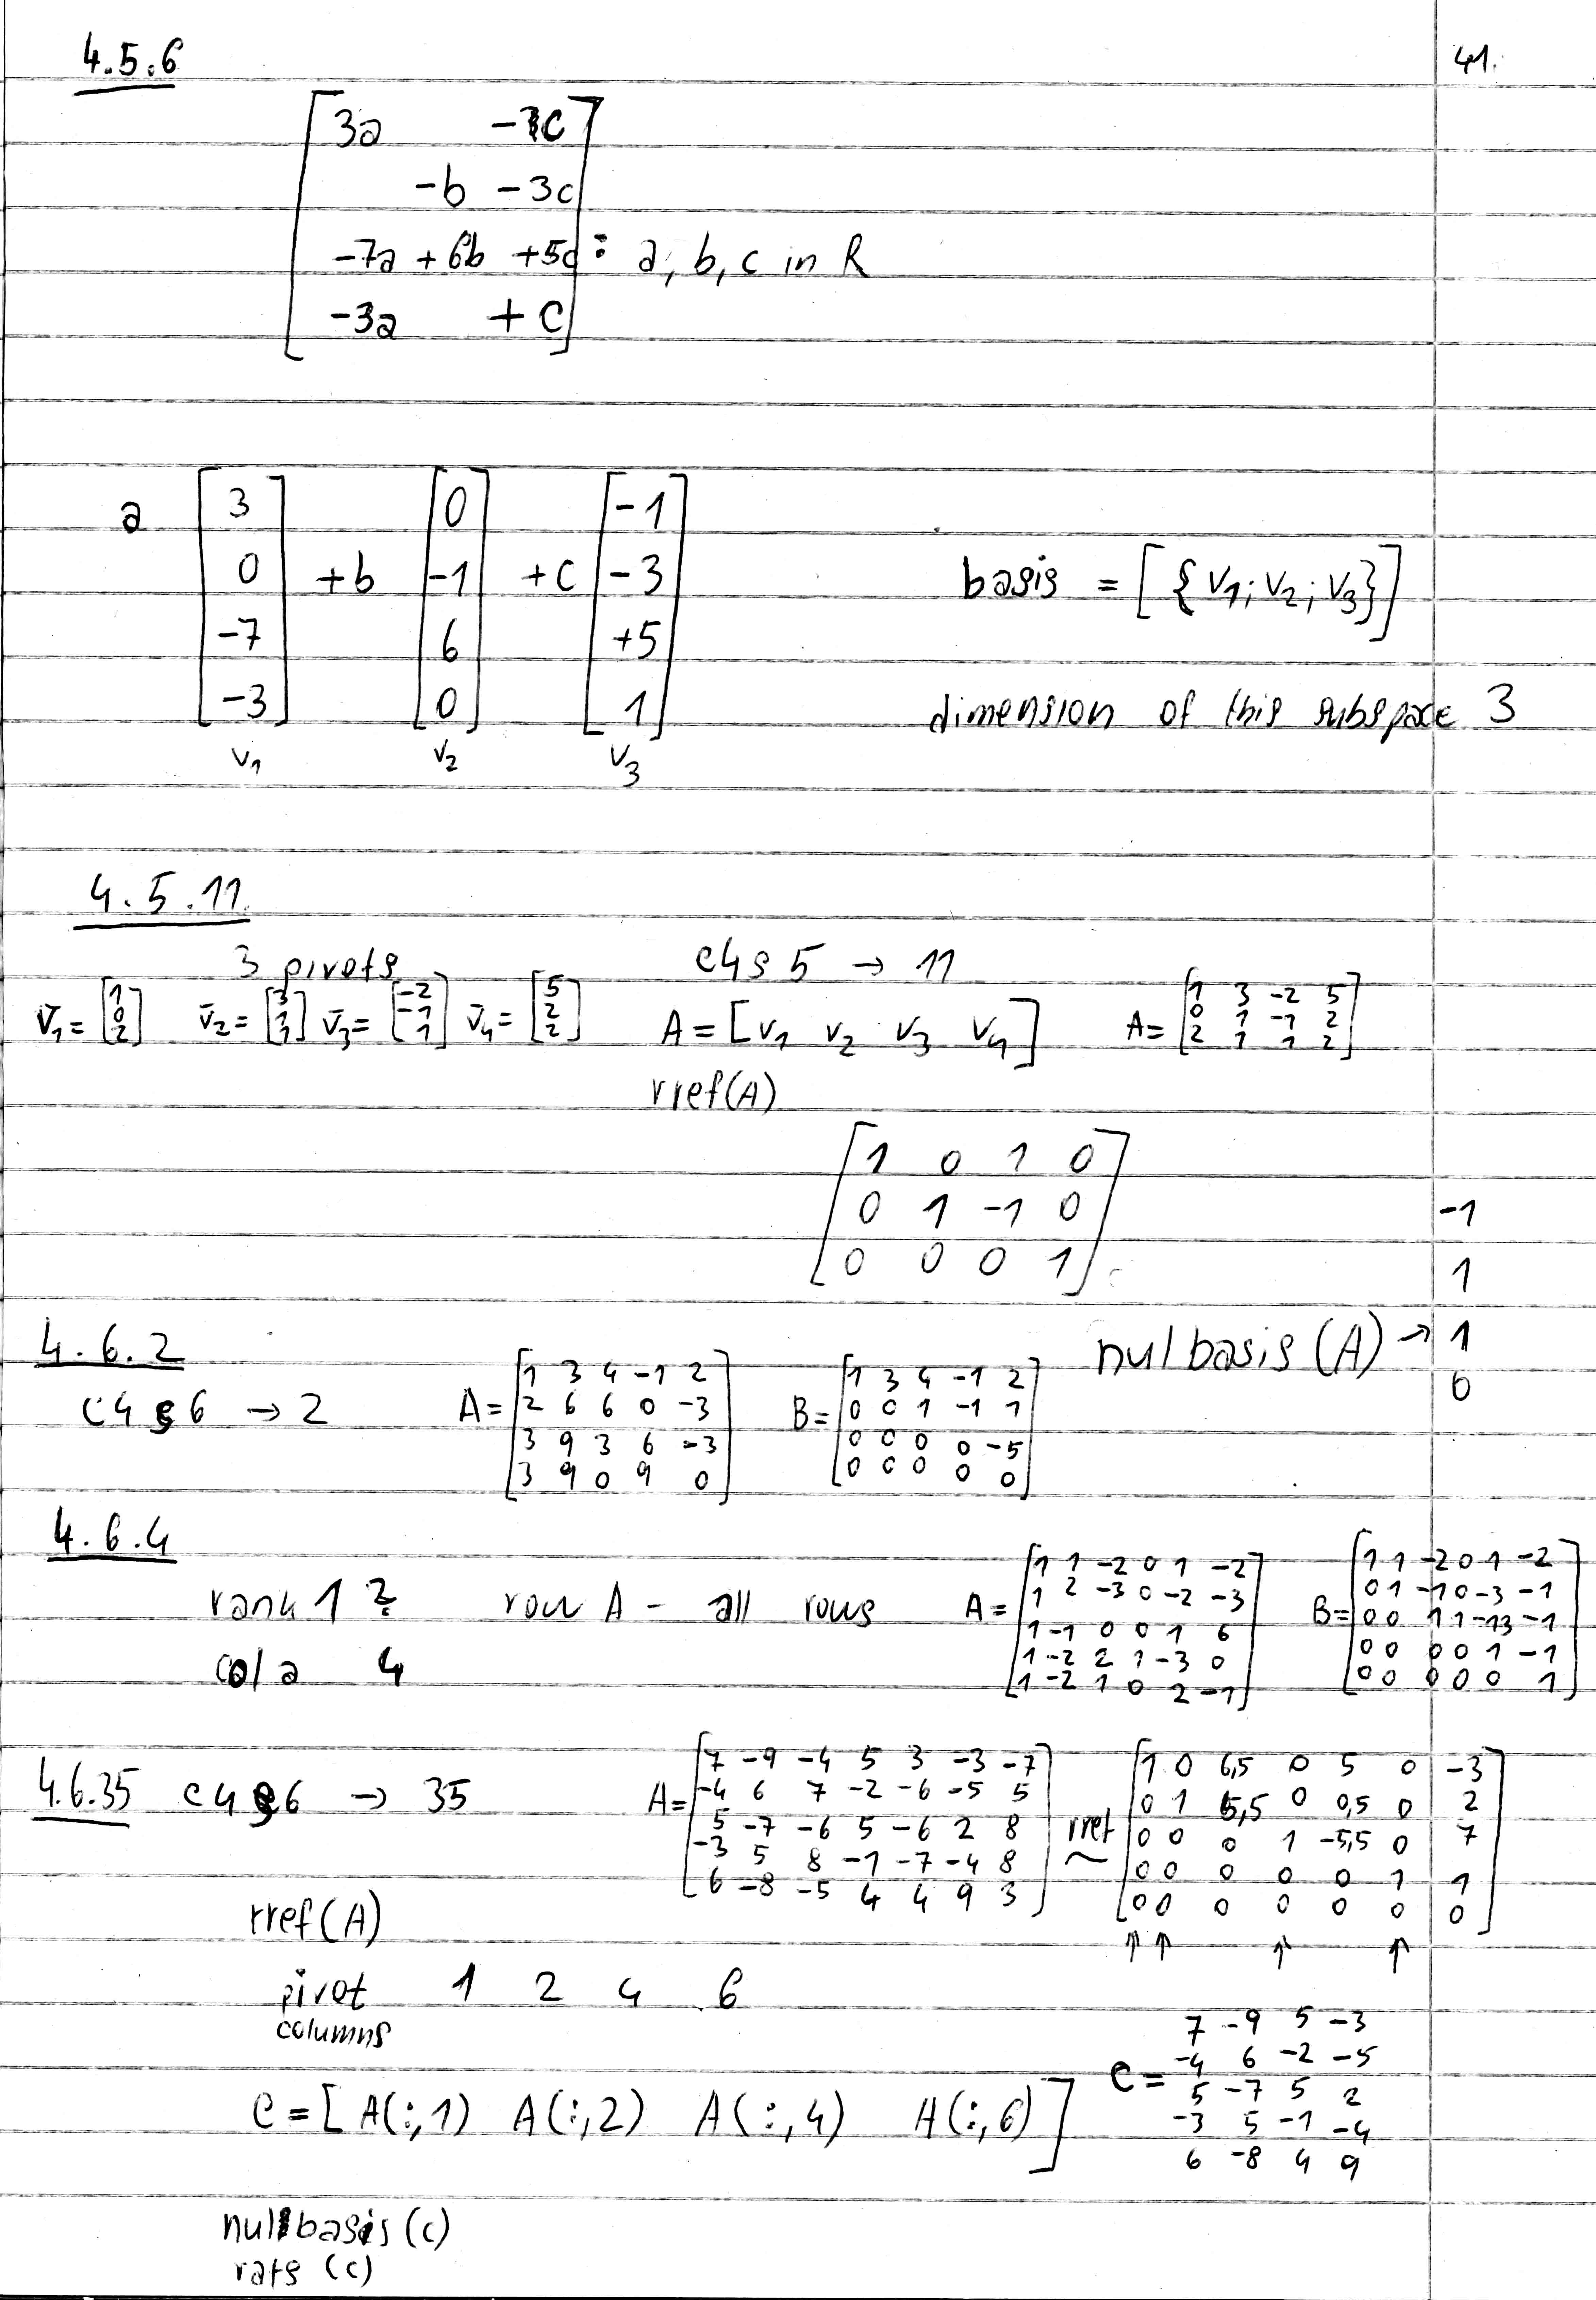 4.5.6 41.
3a -1c
-b -3c
-7a +6b +5c : a, b, c in R
-3a + c
a [3 0 -7 -3] +b [0 -1 6 0] +c [-1 -3 +5 1]
v1 v2 v3
basis = [{v1; v2; v3}]
dimension of this subspace 3
4.5.11
3 pivots c4s5 → 11
v̄1 = [1 0 2] v̄2 = [3 1 1] v̄3 = [-2 -1 1] v̄4 = [5 2 2] A = [v1 v2 v3 v4] A =
1 3 -2 5
0 1 -1 2
2 1 1 2
rref(A)
1 0 1 0
0 1 -1 0
0 0 0 1
nulbasis(A) → -1 1 1 0
4.6.2
c4s6 → 2
A =
1 3 4 -1 2
2 6 6 0 -3
3 9 3 6 -3
3 9 0 9 0
B =
1 3 4 -1 2
0 0 1 -1 1
0 0 0 0 -5
0 0 0 0 0
4.6.4
rank 1 ? row A - all rows
col a 4
A =
1 1 -2 0 1 -2
1 2 -3 0 -2 -3
1 -1 0 0 1 6
1 -2 2 1 -3 0
1 -2 1 0 2 -1
B =
1 1 -2 0 1 -2
0 1 -1 0 -3 -1
0 0 1 1 -13 -1
0 0 0 0 1 -1
0 0 0 0 0 1
4.6.35 c4s6 → 35
A =
7 -9 -4 5 3 -3 -7
-4 6 7 -2 -6 -5 5
5 -7 -6 5 -6 2 8
-3 5 8 -1 -7 -4 8
6 -8 -5 4 4 9 3
rref ~
1 0 6,5 0 5 0 -3
0 1 5,5 0 0,5 0 2
0 0 0 1 -5,5 0 7
0 0 0 0 0 1 1
0 0 0 0 0 0 0
↑ ↑ ↑ ↑
rref(A)
pivot 1 2 4 6
columns
C = [A(:,1) A(:,2) A(:,4) A(:,6)]
C =
7 -9 5 -3
-4 6 -2 -5
5 -7 5 2
-3 5 -1 -4
6 -8 4 9
nulbasis(c)
rats (c)